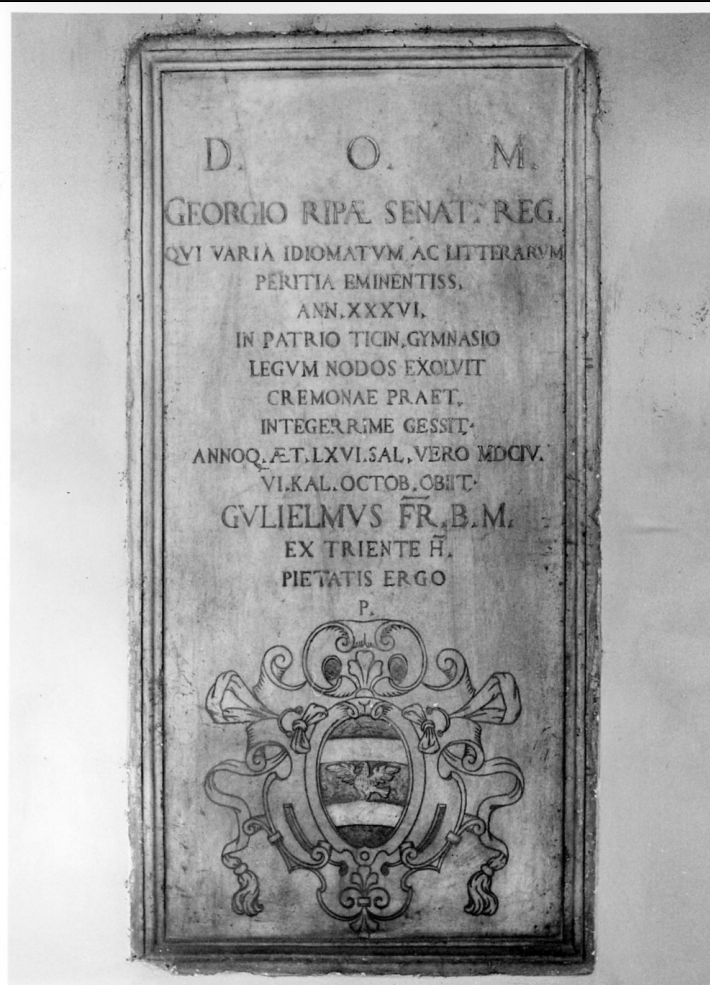 D. O. M.
GEORGIO RIPÆ SENAT. REG.
QVI VARIA IDIOMATVM AC LITTERARVM
PERITIA EMINENTISS.
ANN.XXXVI.
IN PATRIO TICIN.GYMNASIO
LEGVM NODOS EXOLVIT
CREMONAE PRAET.
INTEGERRIME GESSIT.
ANNOQ.ÆT.LXVI.SAL.VERO MDCIV.
VI.KAL.OCTOB.OBIIT.
GVLIELMVS F̅R̅.B.M.
EX TRIENTE H̃.
PIETATIS ERGO
P.